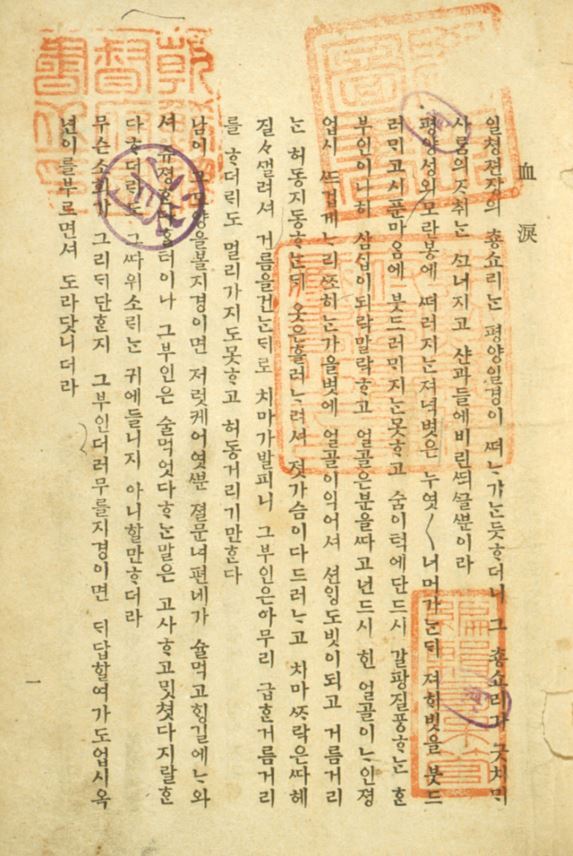 血淚
일쳥젼장의 총쇼리ᄂᆞᆫ 평양일경이 ᄯᅥᄂᆞ가ᄂᆞᆫ듯ᄒᆞ더니 그 총쇼리가 긋치ᄆᆡ
사ᄅᆞᆷ의ᄌᆞ취ᄂᆞᆫ ᄭᅳᆫ너지고 산과들에비린ᄯᅴᄭᅳᆯᄲᅮᆫ이라
평양셩외모란봉에 ᄯᅥ러지ᄂᆞᆫ저녁볏은 누엿〱 너머가ᄂᆞᆫᄃᆡ 져ᄒᆡ빗을 붓드
러ᄆᆡ고시푼마음에 붓드러ᄆᆡ지ᄂᆞᆫ못ᄒᆞ고 숨이턱에단드시 갈팡질풍ᄒᆞᄂᆞᆫ ᄒᆞᆫ
부인이나히 삼십이되락말락ᄒᆞ고 얼골은분을ᄯᅡ고넌드시 흰 얼골이ᄂᆞ인졍
업시 ᄯᅳ겁게ᄂᆞ리ᄶᅩ히ᄂᆞᆫ가을볏에 얼골이익어셔 션ᄋᆡᆼ도빗이되고 거름거리
ᄂᆞᆫ 허동지동ᄒᆞᄂᆞᆫᄃᆡ 옷은흘러ᄂᆞ려셔 젓가슴이다드러ᄂᆞ고 치마ᄶᅡ락은ᄯᅡ헤
질〻ᄭᅳᆯ려셔 거름을건ᄂᆞᆫᄃᆡ로 치마가발피니 그부인은아무리 급ᄒᆞᆫ거름거리
를 ᄒᆞ더ᄅᆡ도 멀리가지도못ᄒᆞ고 허동거리기만ᄒᆞᆫ다
남이 그모양을볼지경이면 저럿케어엿ᄲᅮᆫ 졀문녀편네가 슐먹고ᄒᆡᆼ길에ᄂᆞ와
셔 쥬졍ᄒᆞᆫ다ᄒᆞᆯ터이나 그부인은 슐먹엇다ᄒᆞᄂᆞᆫ말은 고사ᄒᆞ고밋쳣다지랄ᄒᆞᆫ
다ᄒᆞ더ᄅᆡ도 그ᄯᅡ위소리ᄂᆞᆫ 귀에들니지 아니할만ᄒᆞ더라
무슨소회가 그리ᄃᆡ단ᄒᆞᆫ지 그부인더러무를지경이면 ᄃᆡ답할여가도업시옥
년이를부르면셔 도라닷니더라
一